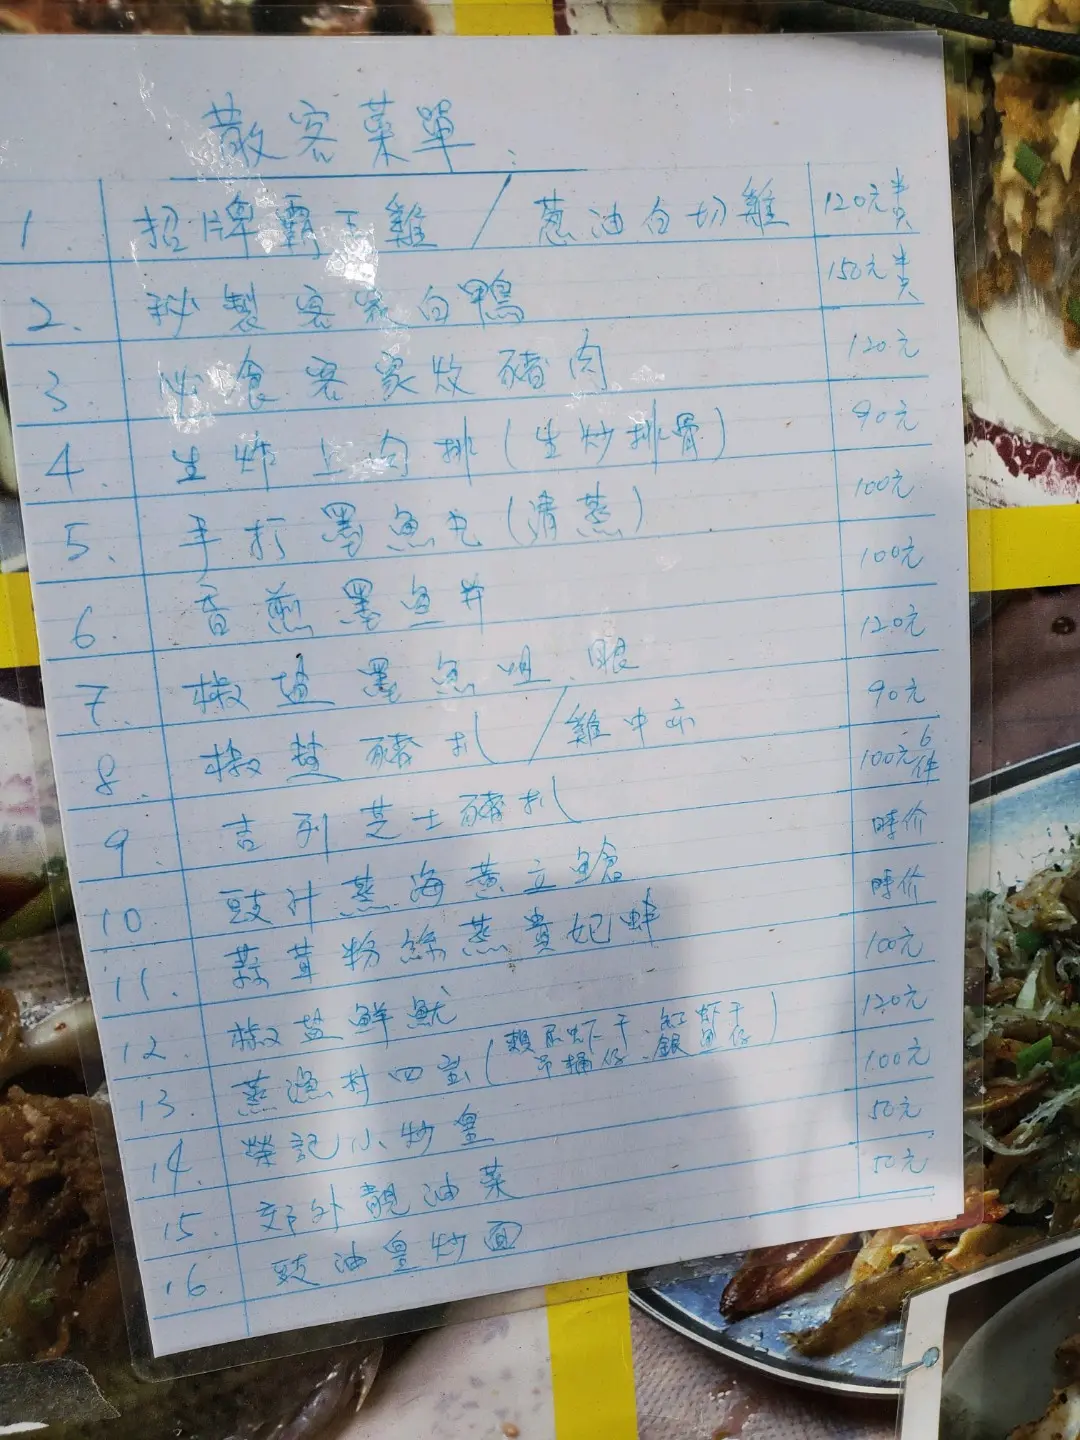 散客菜單:
1. 招牌霸王雞/蔥油白切雞 120元半只
2. 秘製客家白鴨 150元半只
3 必食客家炆豬肉 120元
4 生炸上肉排(生炒排骨) 90元
5. 手打墨魚丸(清蒸) 100元
6 香煎墨魚并 100元
7. 椒盐墨魚咀、眼 120元
8. 椒盐豬扒/雞中亦 90元
9. 吉列芝士豬扒 100元6件
10. 豉汁蒸海黃立鱠 時价
11. 蒜茸粉絲蒸貴妃蚌 時价
12. 椒盐鮮魷 100元
13. 蒸漁村四宝(賴尿虾干、缸虾干 吊桶仔、銀魚仔) 120元
14. 榮記小炒皇 100元
15. 郊外靚油菜 50元
16. 豉油皇炒面 50元